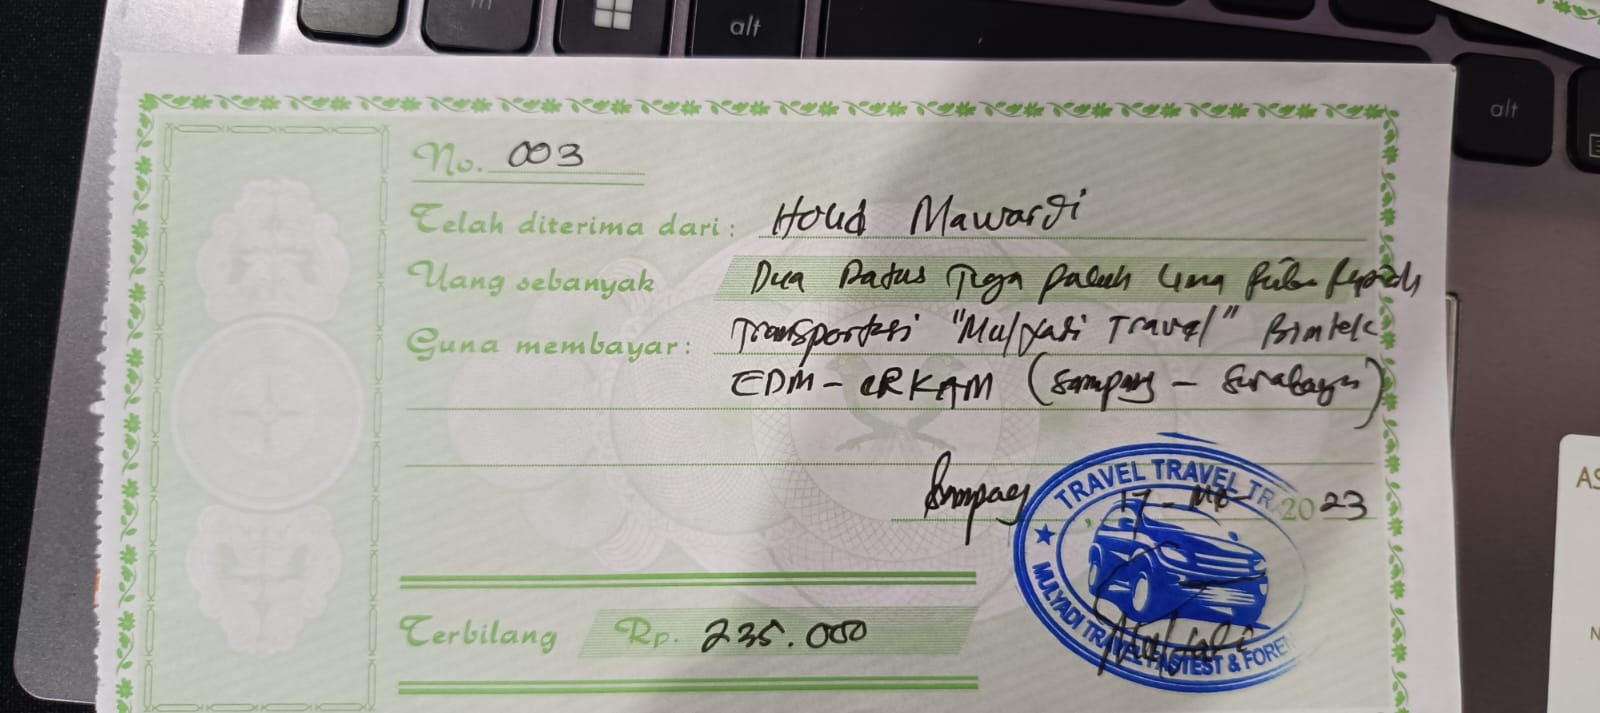 alt
alt
No. 003
Telah diterima dari: Holid Mawardi
Uang sebanyak Dua Ratus Tiga Puluh Lima Ribu Rupiah
Guna membayar: Transportasi "Mulyadi Travel" Bimtek
EDM - eRKAM (Sampang - Surabaya)
Sampang, 17 - 2023
TRAVEL TRAVEL
MULYADI TRAVEL FASTEST &
Terbilang Rp. 235.000
Mulyadi
AS
N